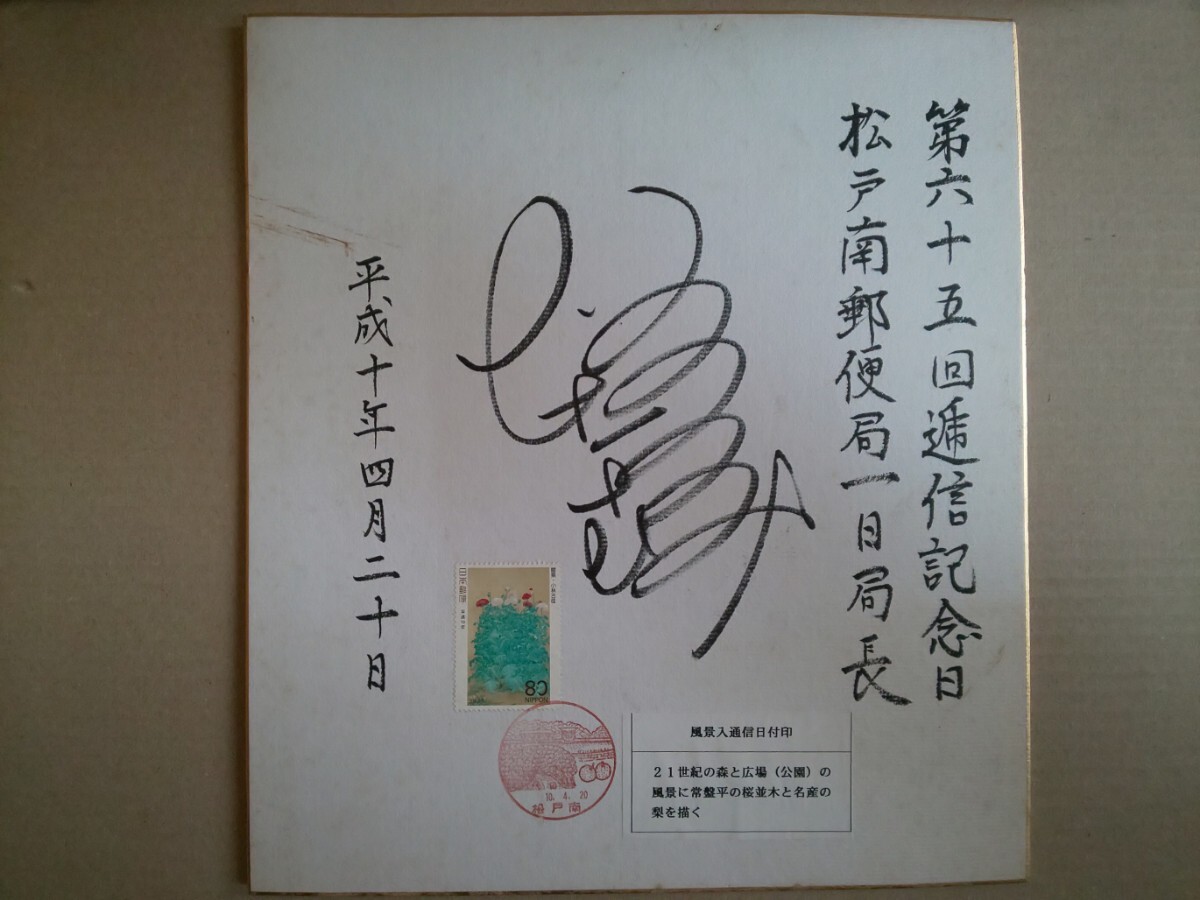 第六十五回逓信記念日
松戸南郵便局一日局長
平成十年四月二十日
日本郵便
80
NIPPON
10.4.20
松戸南
風景入通信日付印
21世紀の森と広場（公園）の
風景に常盤平の桜並木と名産の
梨を描く